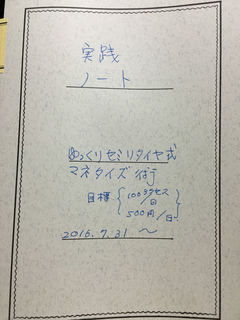 実践
ノート
ゆっくりセミリタイヤ式
マネタイズ術
目標 { 100アクセス/日
500円/日 }
2016.7.31 〜